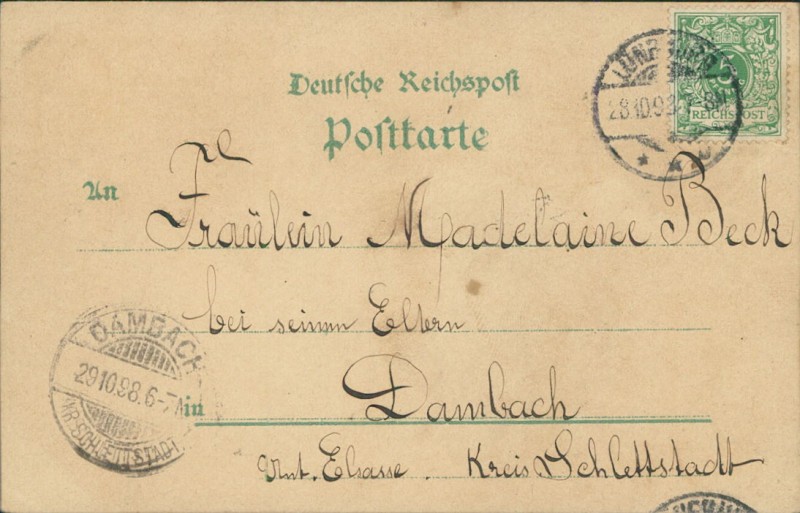 Deutsche Reichspost
Postkarte
5
REICHSPOST
28.10.98
An
Fräulein Madelaine Beck
bei seinen Eltern
DAMBACH
29.10.98.6-7N
(KR. SCHLETTSTADT)
in Dambach
Unt. Elsasse. Kreis Schlettstadt